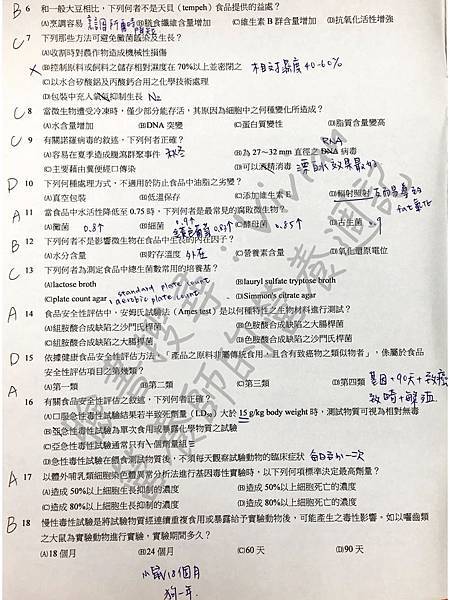 B 6 和一般大豆相比，下列何者不是天貝（tempeh）食品提供的益處？
(A)烹調容易 (B)膳食纖維含量增加 (C)維生素 B 群含量增加 (D)抗氧化活性增強
C 7 下列那些方法可避免黴菌滋染及生長？
(A)收割時對農作物造成機械性損傷
(B)控制原料或飼料之儲存相對濕度在 70%以上並密閉之 相對濕度 40-60%
(C)以水合矽酸鋁及丙酸鈣合用之化學技術處理
(D)包裝中充入氧氣抑制生長 N₂
C 8 當微生物遭受冷凍時，僅少部分能存活，其原因為細胞中之何種變化所造成？
(A)水含量增加 (B)DNA 突變 (C)蛋白質變性 (D)脂質含量變高
C 9 有關諾羅病毒的敘述，下列何者正確？ RNA
(A)容易在夏季造成腹瀉群聚事件 秋冬 (B)為 27～32 nm 直徑之 DNA 病毒
(C)主要藉由糞便經口傳染 (D)可以酒精消毒 漂白水效果最好
D 10 下列何種處理方式，不適用於防止食品中油脂之劣變？
(A)真空包裝 (B)低溫保存 (C)添加維生素 E (D)輻射照射
A 11 當食品中水活性降低至 0.75 時，下列何者是最常見的腐敗微生物？
(A)黴菌 0.8↑ (B)細菌 0.9↑ (C)酵母菌 0.85↑ (D)古生菌 0.9
B 12 下列何者不是影響微生物在食品中生長的內在因子？
(A)水分含量 (B)貯存溫度 外在 (C)營養素含量 (D)氧化還原電位
C 13 下列何者為測定食品中總生菌數常用的培養基？
(A)lactose broth standard plate count (B)lauryl sulfate tryptose broth
(C)plate count agar aerobic plate count (D)Simmon's citrate agar
A 14 食品安全性評估中，安姆氏試驗法（Ames test）是以何種特性之生物材料進行測試？
(A)組胺酸合成缺陷之沙門氏桿菌 (B)色胺酸合成缺陷之大腸桿菌
(C)組胺酸合成缺陷之大腸桿菌 (D)色胺酸合成缺陷之沙門氏桿菌
D 15 依據健康食品安全性評估方法，「產品之原料非屬傳統食用、且含有致癌物之類似物者」，係屬於食品
安全性評估項目之第幾類？
(A)第一類 (B)第二類 (C)第三類 (D)第四類 基因+90天+致癌
致畸+解殖
A 16 有關食品安全性評估之敘述，下列何者正確？
(A)口服急性毒性試驗結果若半致死劑量（LD₅₀）大於 15 g/kg body weight 時，測試物質可視為相對無毒
(B)亞急性毒性試驗為單次食用或暴露化學物質之試驗
(C)亞急性毒性試驗通常只有一個劑量組
(D)急性毒性試驗在餵食測試物質後，不須每天觀察試驗動物的臨床症狀 每日至少一次
A 17 以體外哺乳類細胞染色體異常分析法進行基因毒性實驗時，以下列何項標準決定最高劑量？
(A)造成 50%以上細胞生長抑制的濃度 (B)造成 50%以上細胞死亡的濃度
(C)造成 80%以上細胞生長抑制的濃度 (D)造成 80%以上細胞死亡的濃度
B 18 慢性毒性試驗是將試驗物質經連續重複食用或暴露給予實驗動物後，可能產生之毒性影響。如以囓齒類
之大鼠為實驗動物進行實驗，實驗期間多久？
(A)18 個月 (B)24 個月 (C)60 天 (D)90 天
小鼠 18 個月
狗一年